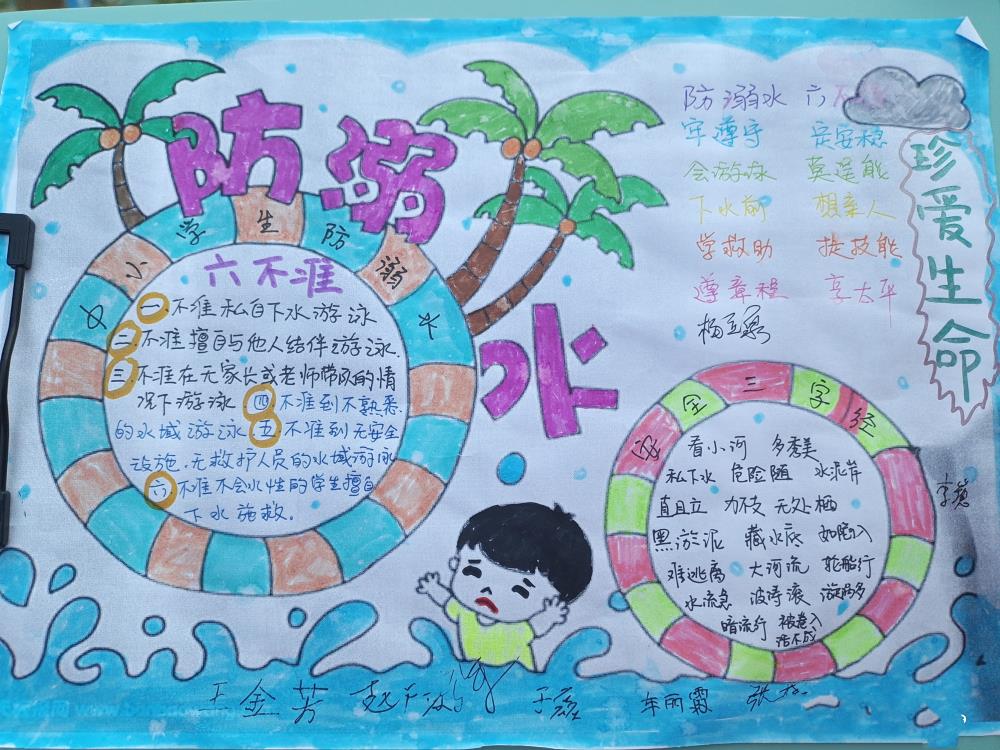 防溺水
中小学生防溺水
六不准
一.不准私自下水游泳
二.不准擅自与他人结伴游泳.
三.不准在无家长或老师带队的情
况下游泳 四.不准到不熟悉
的水域游泳 五.不准到无安全
设施、无救护人员的水域游泳
六.不准不会水性的学生擅自
下水施救.
防溺水 六
牢遵守 定安稳
会游泳 莫逞能
下水前 想亲人
学救助 提技能
遵章程 享太平
珍爱生命
安全三字经
看小河 多秀美
私下水 危险随 水泥岸
直且立 力支 无处栖
黑淤泥 藏水底 如陷入
难逃离 大河流 轮船行
水流急 波涛滚 漩涡多
暗流行 被卷入
活不成
王金芳 于磊 车丽霞